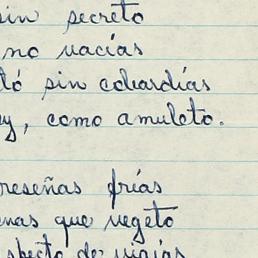 sin secreto
no vacías
tó sin cobardías
y, como amuleto.
reseñas frías
enas que vegeto
specto de